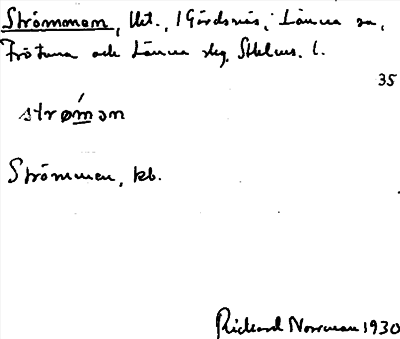 Strömmen, lht., i Gårdsnäs, Länna sn,
Frötuna och Länna skg, Sthlms l.
35
strǿmən
Strömmen, kb.
Rickard Norrman 1930